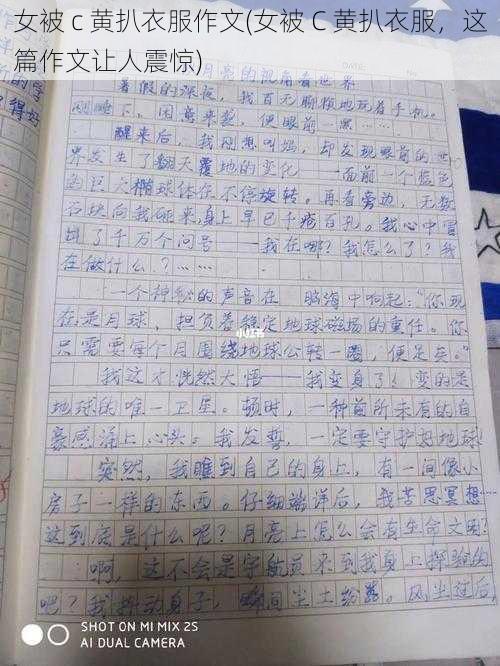 女被 c 黄扒衣服作文(女被 C 黄扒衣服，这
篇作文让人震惊)
月亮的视角看世界
暑假的深夜，我百无聊赖地玩着手机。
刚睡下，困意来袭，便眼前一黑……
醒来后，我刚想叫妈，却发现眼前的世
界发生了翻天覆地的变化——面前一个蓝色
的巨大椭球体在不停旋转。再看旁边，无数
石块向我砸来身上早已千疮百孔。我心中冒
出了千万个问号——我在哪？我怎么了？我
在做什么？……
一个神秘的声音在 脑海中响起："你现
在是月球，担负着稳定地球磁场的重任。你
只需要每个月围绕地球公转一圈，便足矣。"
小红书
我这才恍然大悟——我变身了！变的是
地球的唯一卫星。顿时，一种前所未有的自
豪感涌上心头。我发誓，一定要守护好地球！
突然，我瞧到自己的身上，有一间像小
房子一样的东西。仔细端详后，我苦思冥想…
这到底是什么呢？月亮上怎么会有生命文明？
啊，这不会是宇航员来到我身上探险的
吧？我抖动身子，瞬间尘土纷露。风尘过后，
所的学
记得好
SHOT ON MI MIX 2S
AI DUAL CAMERA